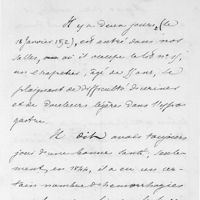 Il y a deux jours, (le
18 janvier 1852), est entré dans nos
salles, où il occupe le lit n° 15,
un charretier, âgé de 55 ans, se
plaignant de difficulté d'uriner
et de douleurs légères dans l'épi-
gastre.
Il dit avoir toujours
joui d'une bonne santé; seule-
ment, en 1844, il a eu un cer-
tain nombre d'hémorrhagies